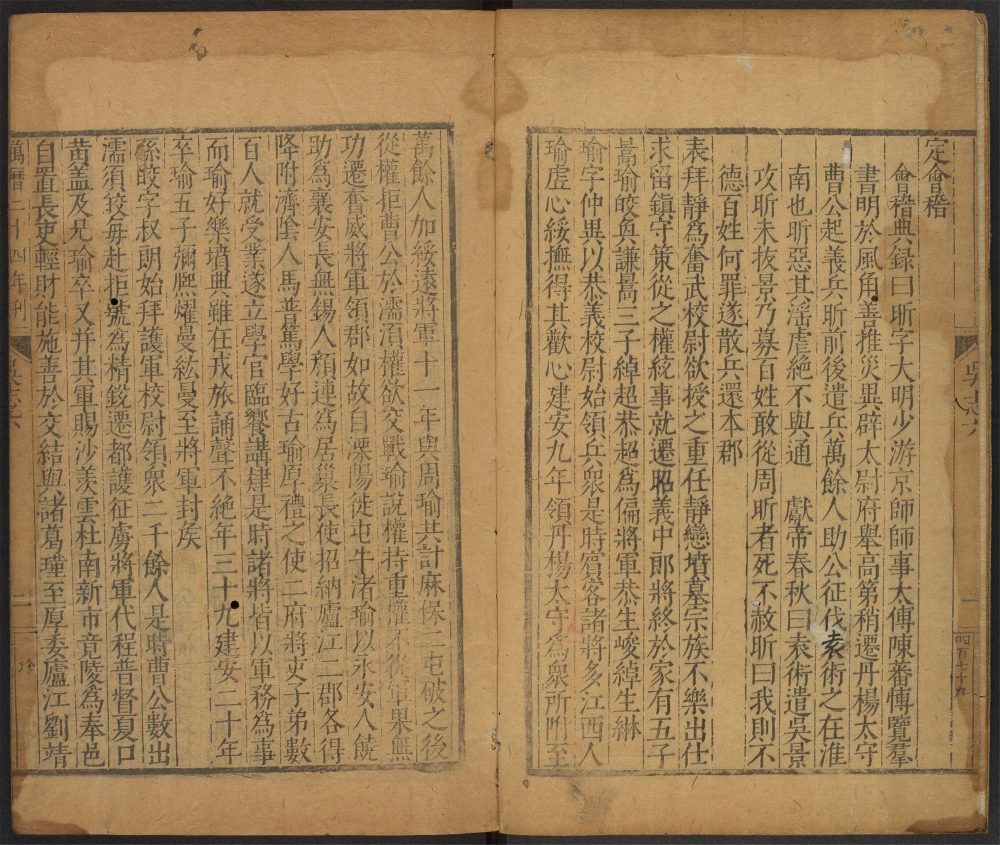 吳志六
一
四百七十九
定會稽
會稽典録曰昕字大明少游京師師事太傅陳蕃愽覽羣
書明於風角善推災異辟太尉府舉高第稍遷丹楊太守
曹公起義兵昕前後遣兵萬餘人助公征伐袁術之在淮
南也昕惡其淫虐絶不與通 獻帝春秋曰袁術遣吳景
攻昕未拔景乃募百姓敢從周昕者死不赦昕曰我則不
德百姓何罪遂散兵還本郡
表拜靜爲奮武校尉欲授之重任靜戀墳墓宗族不樂出仕
求留鎮守策從之權統事就遷昭義中郎將終於家有五子
暠瑜皎奐謙暠三子綽超恭超爲偏將軍恭生峻綽生綝
瑜字仲異以恭義校尉始領兵衆是時賓客諸將多江西人
瑜虚心綏撫得其歡心建安九年領丹楊太守爲衆所附至
萬餘人加綏遠將軍十一年與周瑜共討麻保二屯破之後
從權拒曹公於濡須權欲交戰瑜說權持重權不從軍果無
功遷奮威將軍領郡如故自溧陽徙屯牛渚瑜以永安人饒
助爲襄安長無錫人顔連爲居巢長使招納廬江二郡各得
降附濟陰人馬普篤學好古瑜厚禮之使二府將吏子弟數
百人就受業遂立學官臨饗講肄是時諸將皆以軍務爲事
而瑜好樂墳典雖在戎旅誦聲不絶年三十九建安二十年
卒瑜五子彌熈燿曼紘曼至將軍封矦
孫皎字叔朗始拜護軍校尉領衆二千餘人是時曹公數出
濡須皎毎赴拒號爲精鋭遷都護征虜將軍代程普督夏口
黄盖及兄瑜卒又并其軍賜沙羨雲杜南新市竟陵爲奉邑
自置長吏輕財能施善於交結與諸葛瑾至厚委廬江劉靖
萬曆二十四年刊
吳志六
一